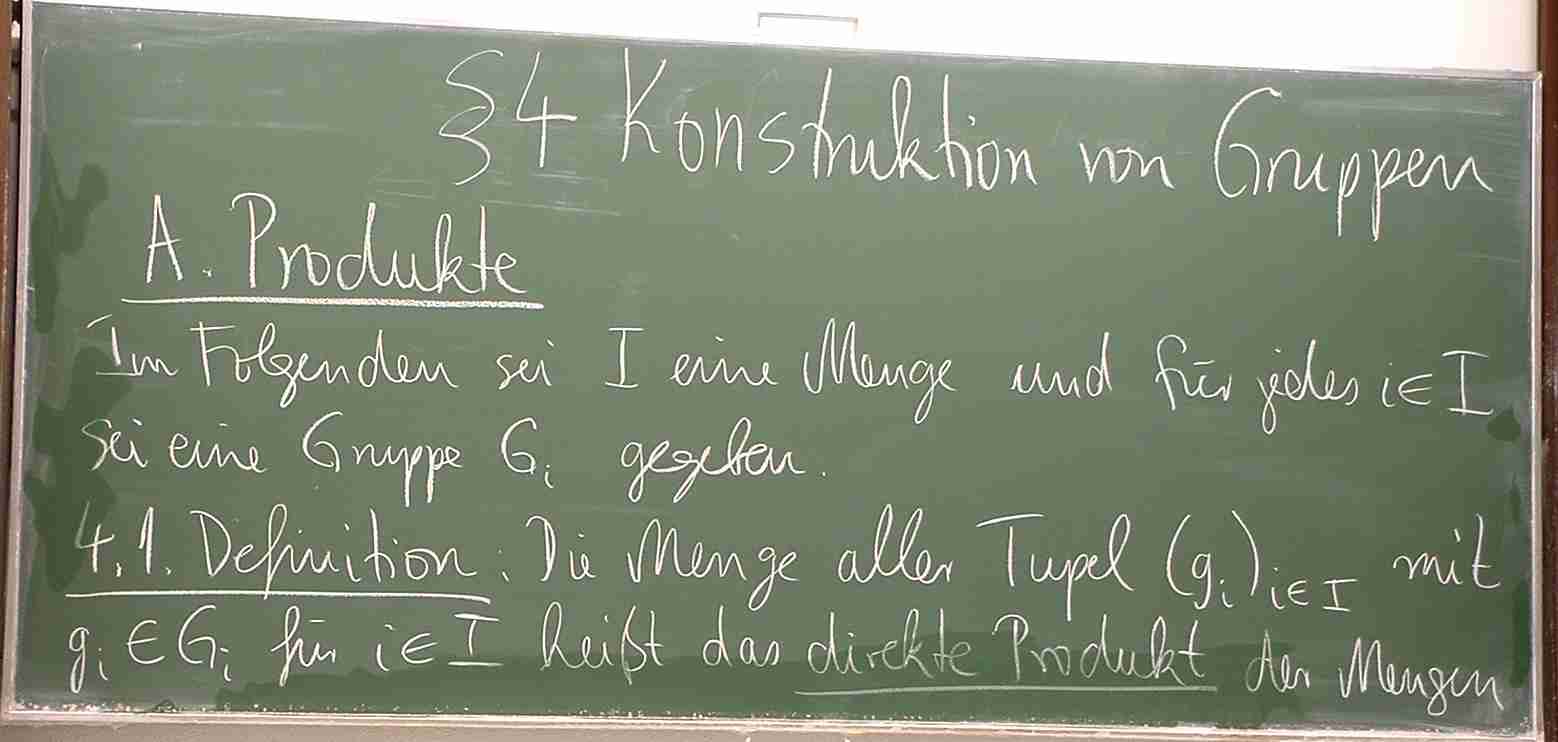 §4 Konstruktion von Gruppen
A. Produkte
Im Folgenden sei I eine Menge und für jedes i∈I
sei eine Gruppe Gᵢ gegeben.
4.1. Definition: Die Menge aller Tupel (gᵢ)ᵢ∈I mit
gᵢ∈Gᵢ für i∈I heißt das direkte Produkt der Mengen